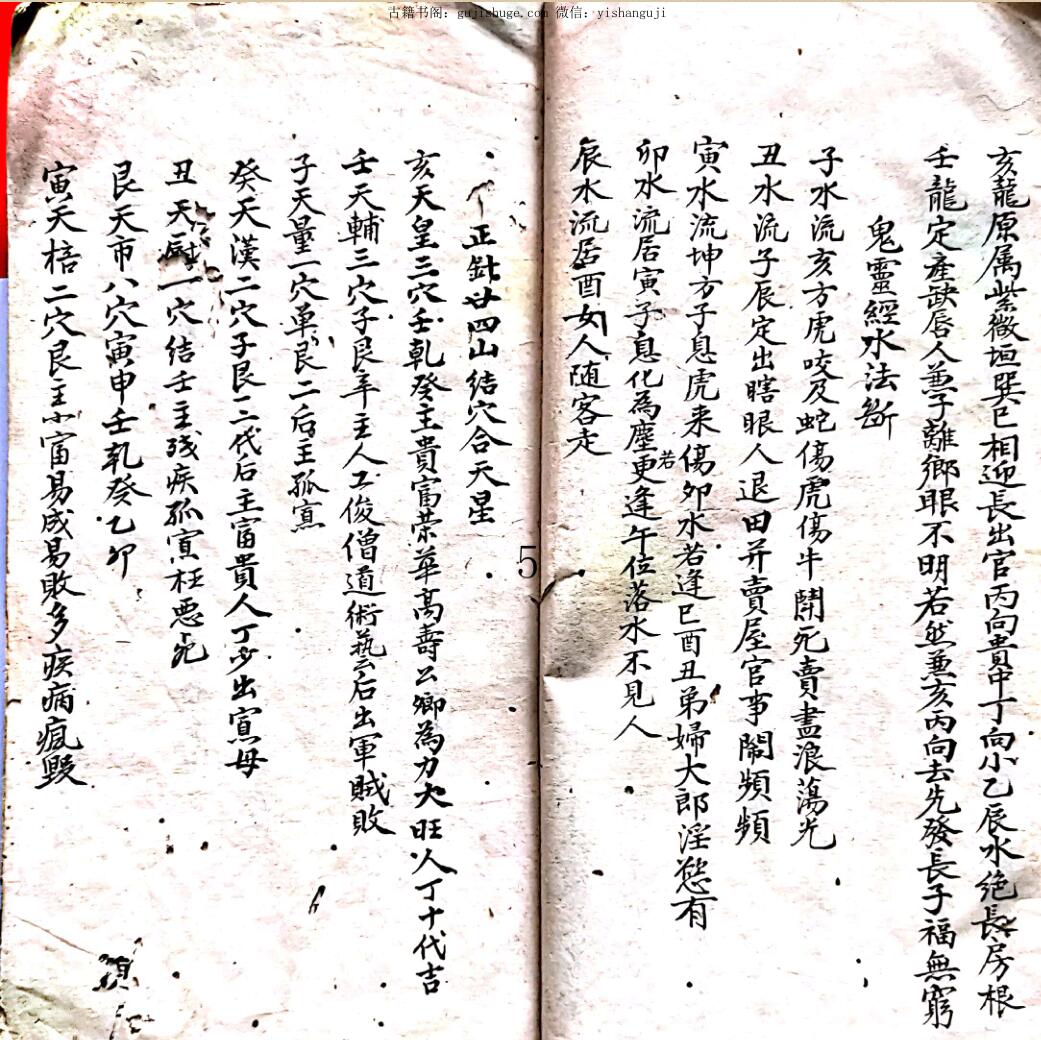 古籍书阁：gujishuge.com 微信：yishanguji
亥龍原属紫微垣巽巳相迎長出官丙向貴中丁向小乙辰水绝長房根
壬龍定產缺唇人兼子離鄉眼不明若然兼亥丙向去先發長子福無窮
鬼靈經水法斷
子水流亥方虎咬及蛇傷虎傷牛鬪死賣盡浪蕩光
丑水流子辰定出瞎眼人退田并賣屋官事鬧頻頻
寅水流坤方子息虎来傷卯水若逢巳酉丑弟婦大郎淫慾有
卯水流居寅子息化為塵更若逢午位落水不見人
辰水流居酉女人随客走
5
正針廿四山結穴合天星
亥天皇三穴壬乹癸主貴富荣華高壽公卿為力大旺人丁十代吉
壬天輔三穴子艮辛主人工俊僧道術藝后出軍賊敗
子天量一穴单艮二后主孤寡
癸天漢二穴子艮二代后主富貴人丁少出寡母
丑天厨一穴結壬主残疾孤寡枉悪死
艮天市八穴寅申壬乹癸乙卯
寅天棓二穴艮主小富易成易敗多疾病瘋毀